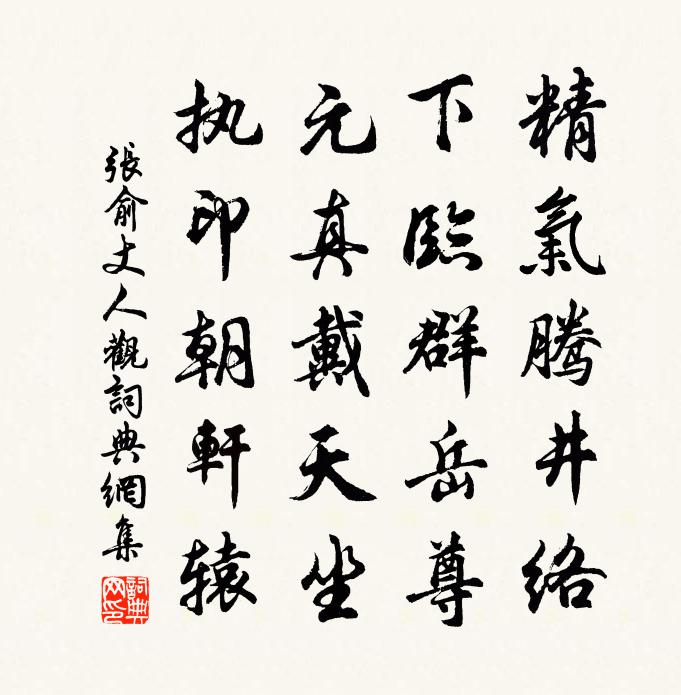 精氣騰井络
下臨群岳尊
元真戴天坐
执印朝軒辕
張俞丈人觀詞典網集
詞典網印